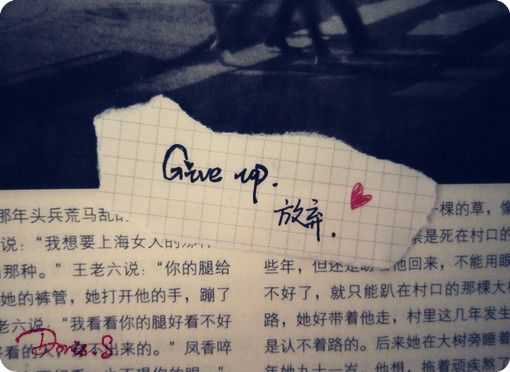 Give up.
放弃.
那年头兵荒马乱的
说：“我想要上海女人的那种
那种。”王老六说：“你的腿给
她的裤管，她打开他的手，蹦了
老六说：“我看看你的腿好看不好
好看的 不出来的。”凤香啐
一棵的草，像
亲是死在村口
些年，但还是 他回来，不能用眼
不好了，就只能趴在村口的那棵大
路，她好带着他走，村里这几年发生
是认不着路的。后来她在大树旁睡着
年她九十一岁。他想，拖着顽疾熬
Doris.S